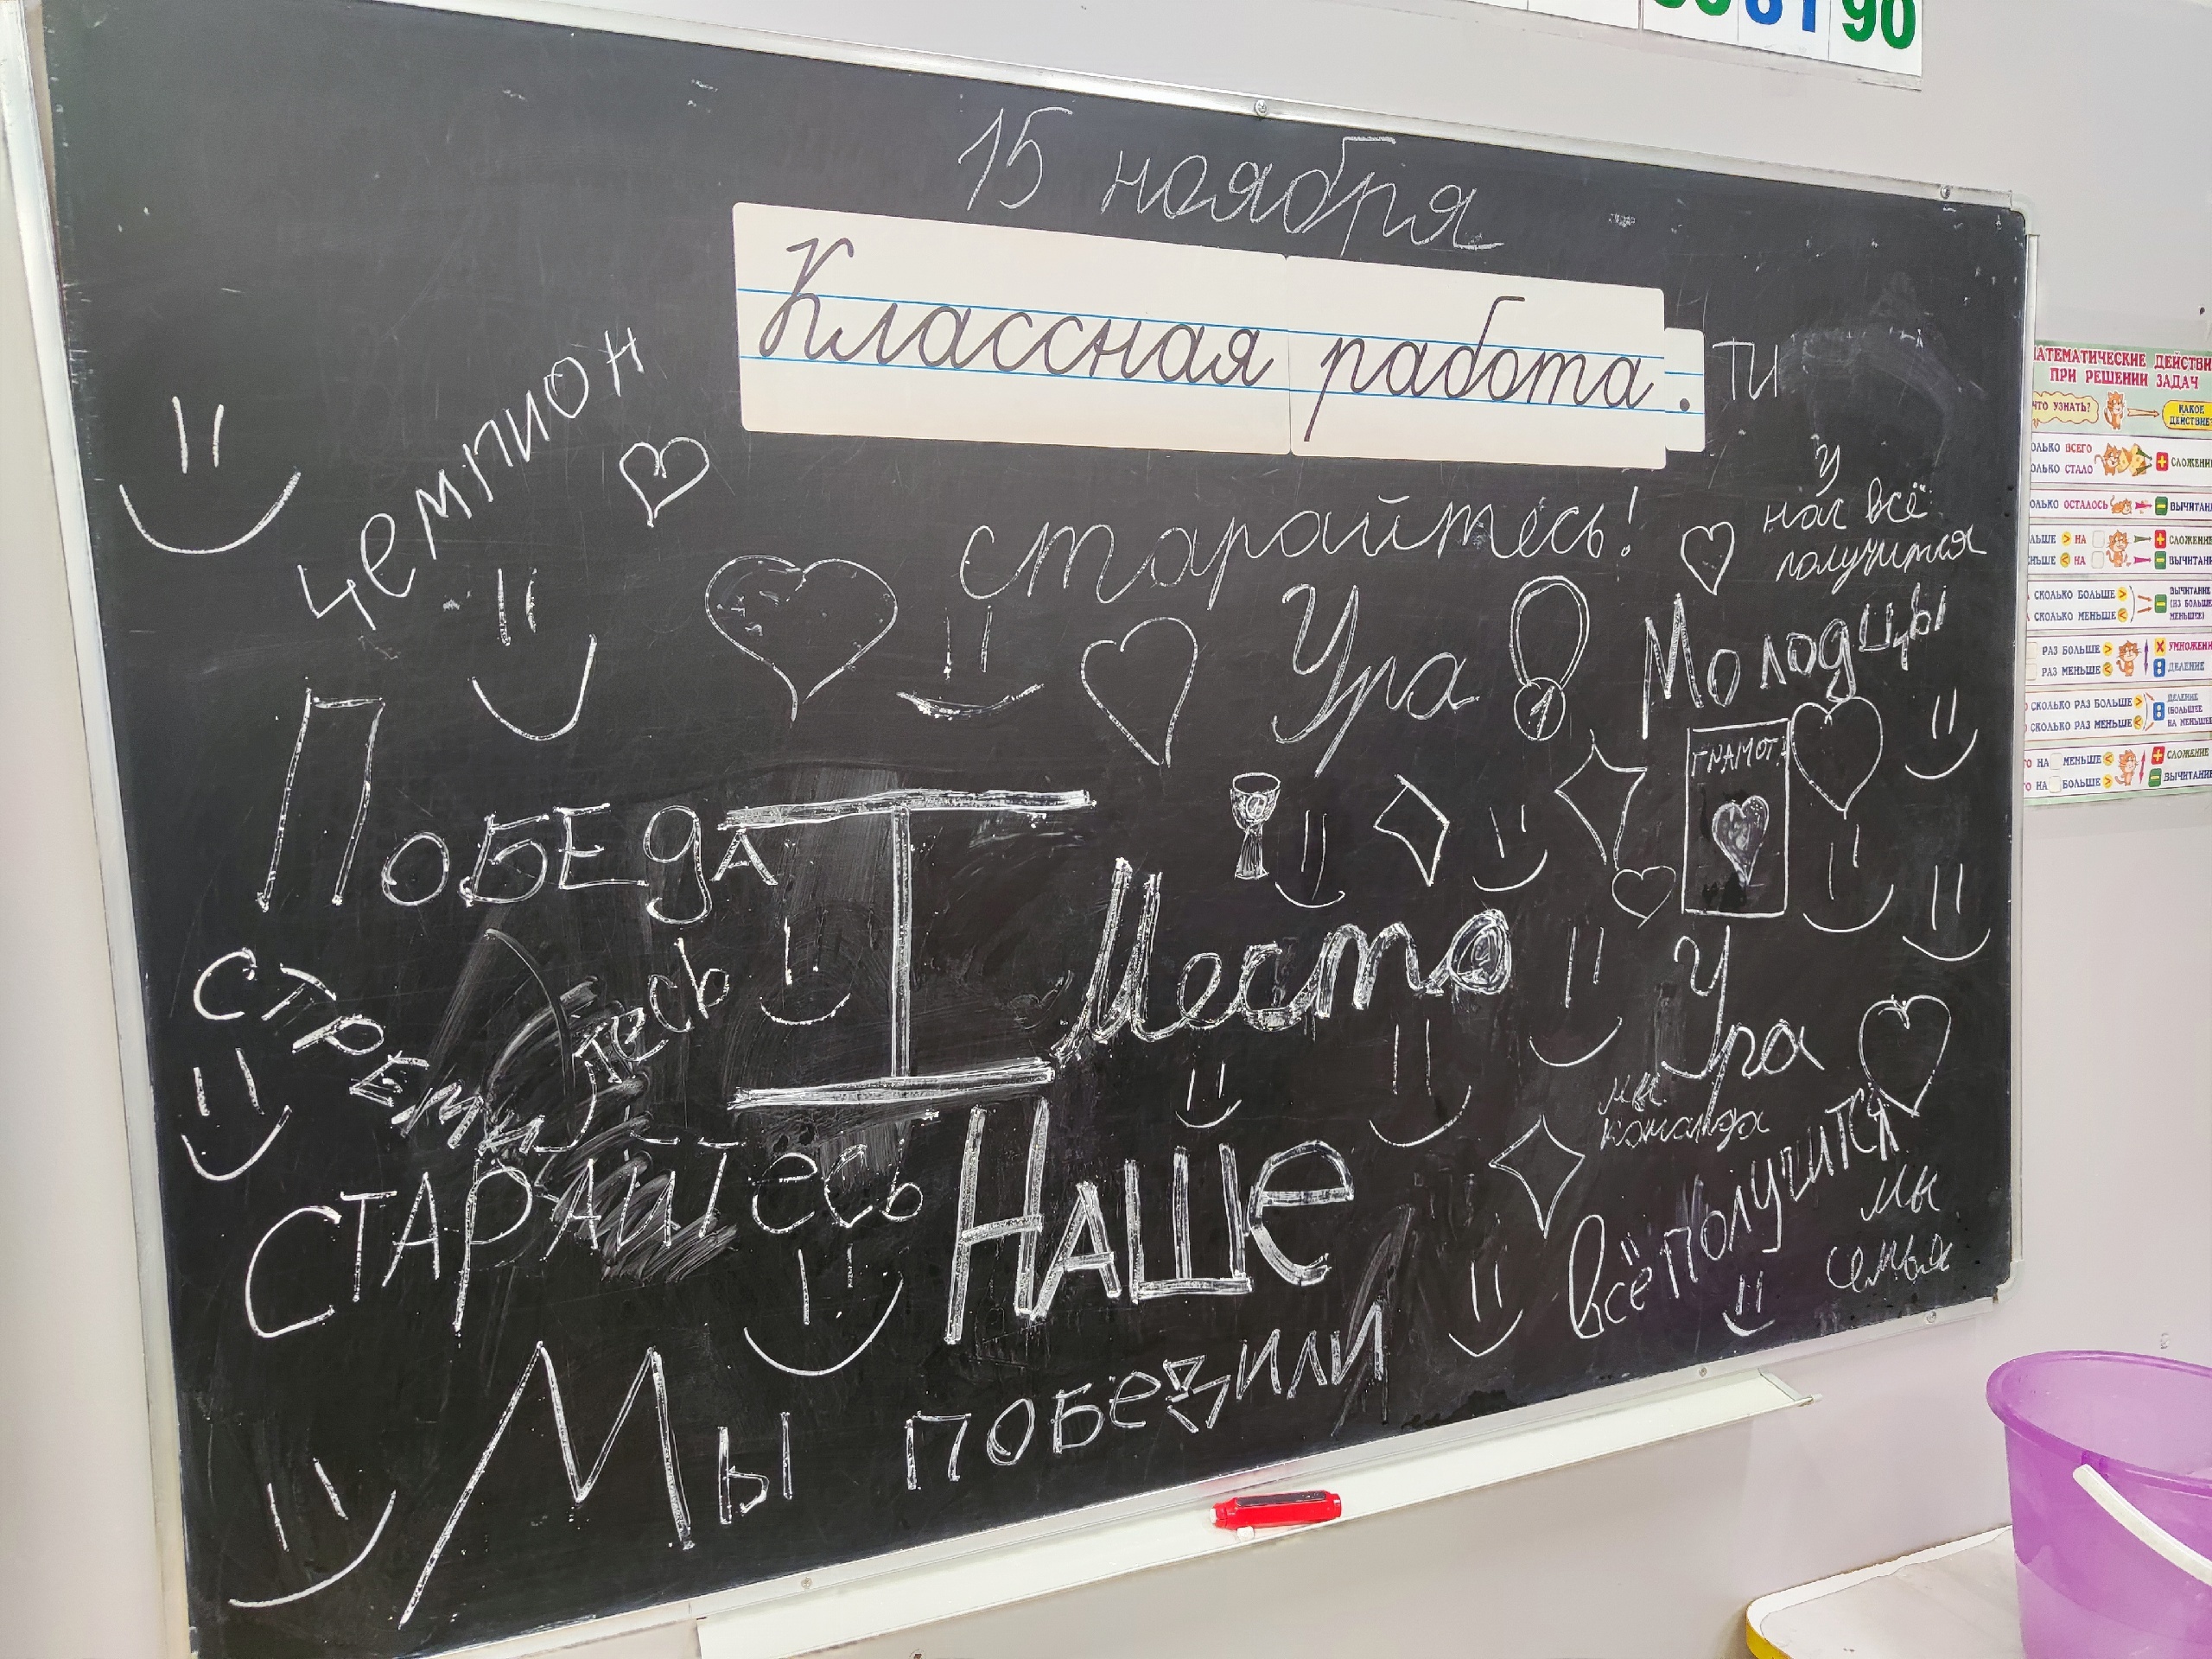 90
15 ноября
Классная работа.
ТИ
чемпион
старайтесь!
У
нас всё
получится
Ура
1
Молодцы
ГРАМОТ
ПОБЕдА
I Место
Ура
мы
команда
СТАРАЙТЕСЬ
НАШЕ
всё получится
мы
семья
Мы победили
МАТЕМАТИЧЕСКИЕ ДЕЙСТВИ
ПРИ РЕШЕНИИ ЗАДАЧ
ЧТО УЗНАТЬ?
КАКОЕ
ДЕЙСТВИЕ
ОЛЬКО ВСЕГО
ОЛЬКО СТАЛО
+ СЛОЖЕНИ
ОЛЬКО ОСТАЛОСЬ
- ВЫЧИТАНИ
ЬШЕ > НА
+ СЛОЖЕНИЕ
НЬШЕ < НА
- ВЫЧИТАНИ
СКОЛЬКО БОЛЬШЕ >
СКОЛЬКО МЕНЬШЕ <
ВЫЧИТАНИЕ
(ИЗ БОЛЬШЕ
МЕНЬШЕЕ)
РАЗ БОЛЬШЕ >
× УМНОЖЕНИ
РАЗ МЕНЬШЕ <
: ДЕЛЕНИЕ
СКОЛЬКО РАЗ БОЛЬШЕ >
СКОЛЬКО РАЗ МЕНЬШЕ <
ДЕЛЕНИЕ
(БОЛЬШЕЕ
НА МЕНЬШЕЕ
НА МЕНЬШЕ <
+ СЛОЖЕНИЕ
НА БОЛЬШЕ >
- ВЫЧИТАНИ